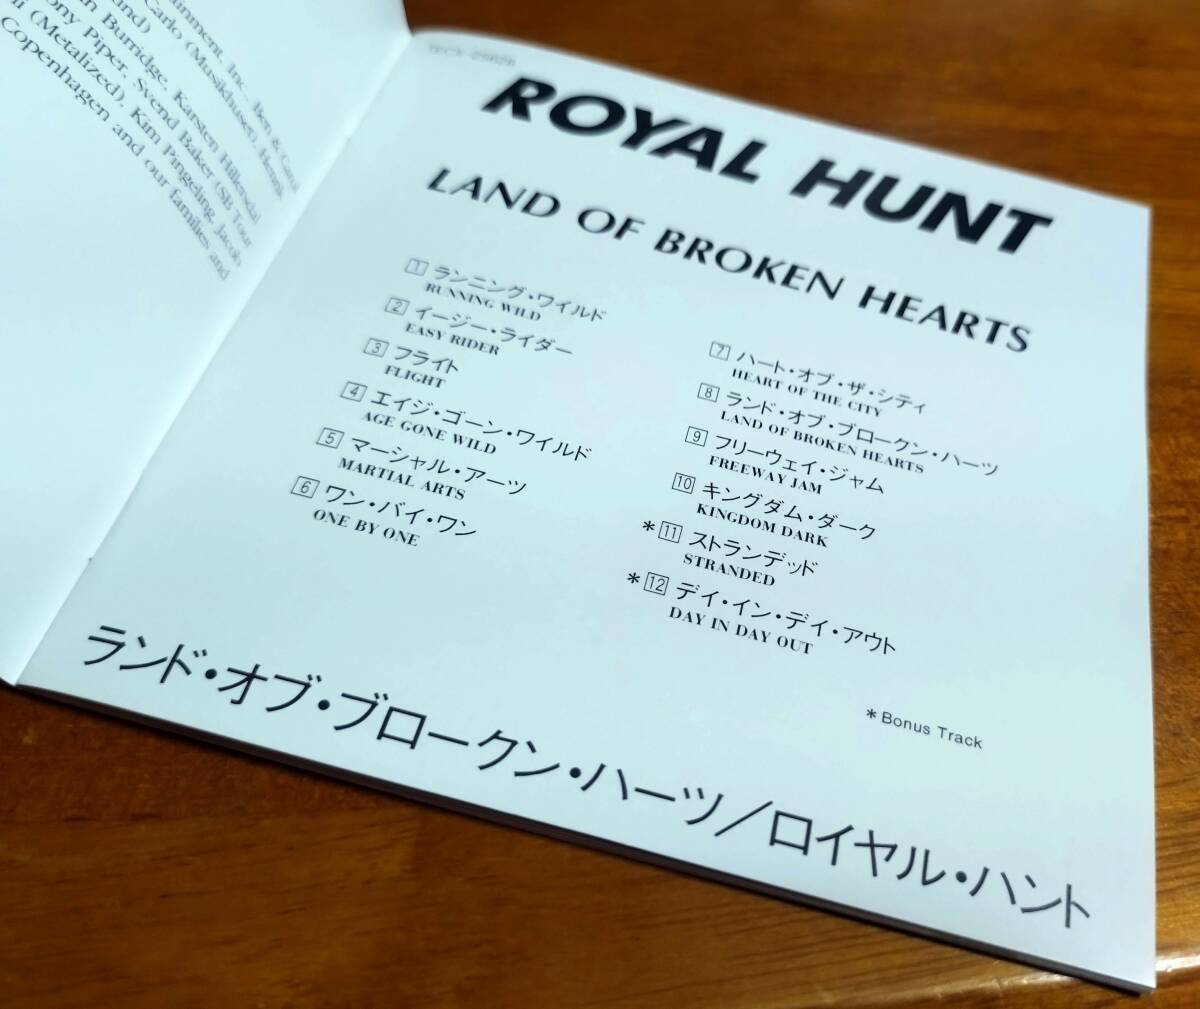 inment, Inc., Ben & Carol
Carlo (Musikhuset), Henrik
Burridge, Karsten Hillersdal
ony Piper, Svend Baker (SB Tour
ni (Metalized), Kim Pingeling, Jacob
Copenhagen and our families and
ROYAL HUNT
LAND OF BROKEN HEARTS
1 ランニング・ワイルド
RUNNING WILD
2 イージー・ライダー
EASY RIDER
3 フライト
FLIGHT
4 エイジ・ゴーン・ワイルド
AGE GONE WILD
5 マーシャル・アーツ
MARTIAL ARTS
6 ワン・バイ・ワン
ONE BY ONE
7 ハート・オブ・ザ・シティ
HEART OF THE CITY
8 ランド・オブ・ブロークン・ハーツ
LAND OF BROKEN HEARTS
9 フリーウェイ・ジャム
FREEWAY JAM
10 キングダム・ダーク
KINGDOM DARK
*11 ストランデッド
STRANDED
*12 デイ・イン・デイ・アウト
DAY IN DAY OUT
*Bonus Track
ランド・オブ・ブロークン・ハーツ/ロイヤル・ハント